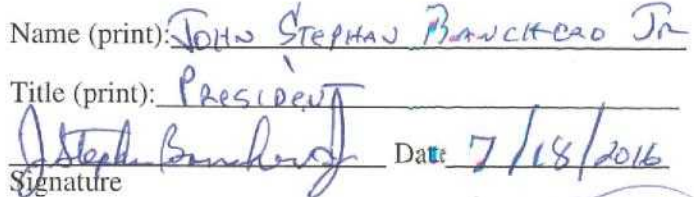 Name (print): JOHN STEPHAN BANCHERO JR
Title (print): PRESIDENT
J Stephan Banchero Jr Date 7/18/2016
Signature